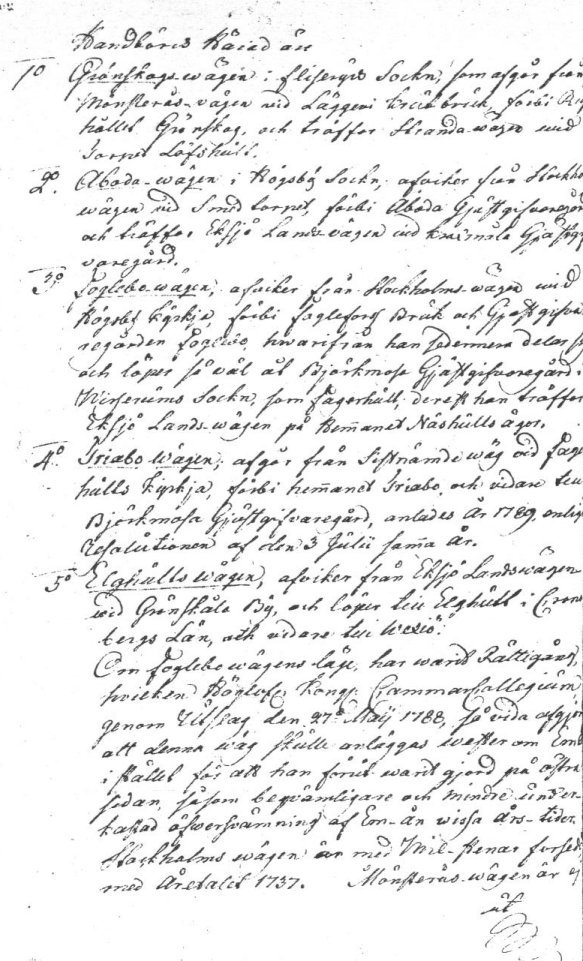 Handbörds Härad äro
1o Grönskogs-wägen i Fliseryds Sockn, som afgår från
Mönsterås-wägen wid Läggevi förbi
hållet Grönskog, och träffer Stranda-wägen wid
Torpet Löfshult.
2o. Aboda-wägen i Högsby Sockn, afviker från Stockho
wägen wid Smedtorpet, förbi Aboda Gjästgifvaregår
och träffer Eksjö Lands-wägen wid Gjästgif
varegård.
3o Foglebo wägen, afviker från Stockholms-wägen wid
Högsby Kyrkja förbi Fogelfors Bruk och Gjästgifva
regården Foglebo, hwarifrån han sedermera delar s
och löper så wäl åt Björkmosa Gjästgifvaregård i
Wirserums Sockn, som Fagerhult, derest han träffer
Eksjö Lands-wägen på Hem̅anet Näshults ägor.
4o Triabo Wägen, afgår från Sistnämde wäg wid Fage
hults Kyrkja, förbi hem̅anet Triabo, och widare till
Björkmosa Gjästgifvaregård, anlades År 1789, enlig
Resolutionen af den 3 Julii sam̅a År.
5o Elghults wägen, afviker från Eksjö Landswägen
wid Grönskåla By, och löper till Elghult i Cron
bergs Län, och widare till Wexiö.
Om Foglebo wägens läge, har warit Rättigång,
hwilken Höglofl. Kongl. Cammarcollegium
genom Utslag den 27e Maij 1788, så vida afgjor
att denna wäg skulle anläggas wester om Em
i stället för att han förut warit gjord på östra
sidan, såsom beqvämligare och mindre under
kastad öfwersvämning af Em-ån wissa års-tider.
Stockholms wägen är med Mil-stenar försed
med Åretalet 1737. Mönsterås-wägen är ej
åt